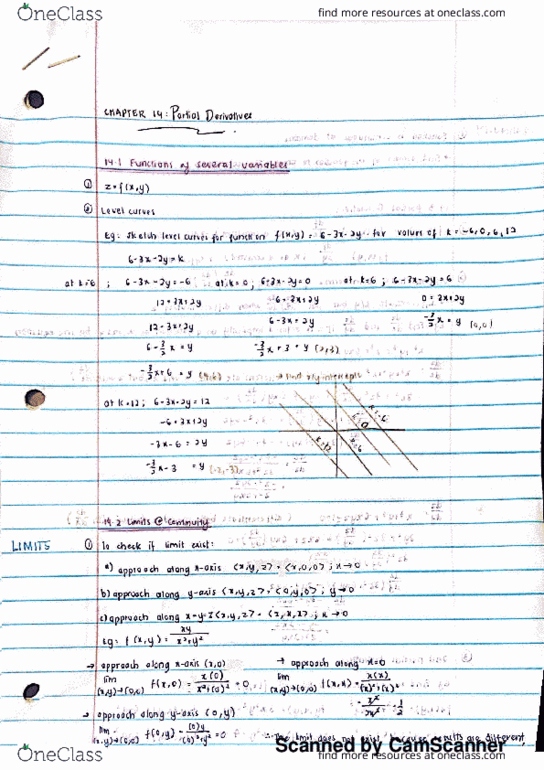 OneClass
find more resources at oneclass.com
CHAPTER 14: Partial Derivatives
14.1 Functions of several variables
① z=f(x,y)
② Level curves
Eg: Sketch level curves for function f(x,y) = 6-3x-2y for values of k=-6,0,6,12
6-3x-2y=k
at k=6 ; 6-3x-2y=-6 ; at k=0 ; 6-3x-2y=0 at k=6 ; 6-3x-2y=6
12=3x+2y 6=3x+2y 0=3x+2y
12-3x=2y 6-3x=2y -3/2x=y (0,0)
6-3/2x=y -3/2x+3=y (2,3)
-3/2x+6=y (4,6) → find x,y-intercepts
at k=12 ; 6-3x-2y=12
-6=3x+2y
-3x-6=2y
-3/2x-3 =y (-2,-3)
k=-6
k=0
k=6
k=12
14.2 Limits @ Continuity
LIMITS ① To check if limit exist:
a) approach along x-axis <x,y,z> = <x,0,0> ; x→0
b) approach along y-axis <x,y,z> = <0,y,0> ; y→0
c) approach along x=y=z <x,y,z> = <x,x,x> ; x→0
Eg: f(x,y) = xy/x²+y²
→ approach along x-axis (x,0) → approach along x=
lim (x,y)→(0,0) f(x,0) = x(0)/x²+(0)² = 0 lim (x,y)→(0,0) f(x,x) = x(x)/(x)²+(x)²
= x²/2x² = 1/2
→ approach along y-axis (0,y)
lim (x,y)→(0,0) f(0,y) = (0)y/(0)²+y² = 0 ∴ The limit does not exist because results are different,
OneClass
Scanned by CamScanner
find more resources at oneclass.com